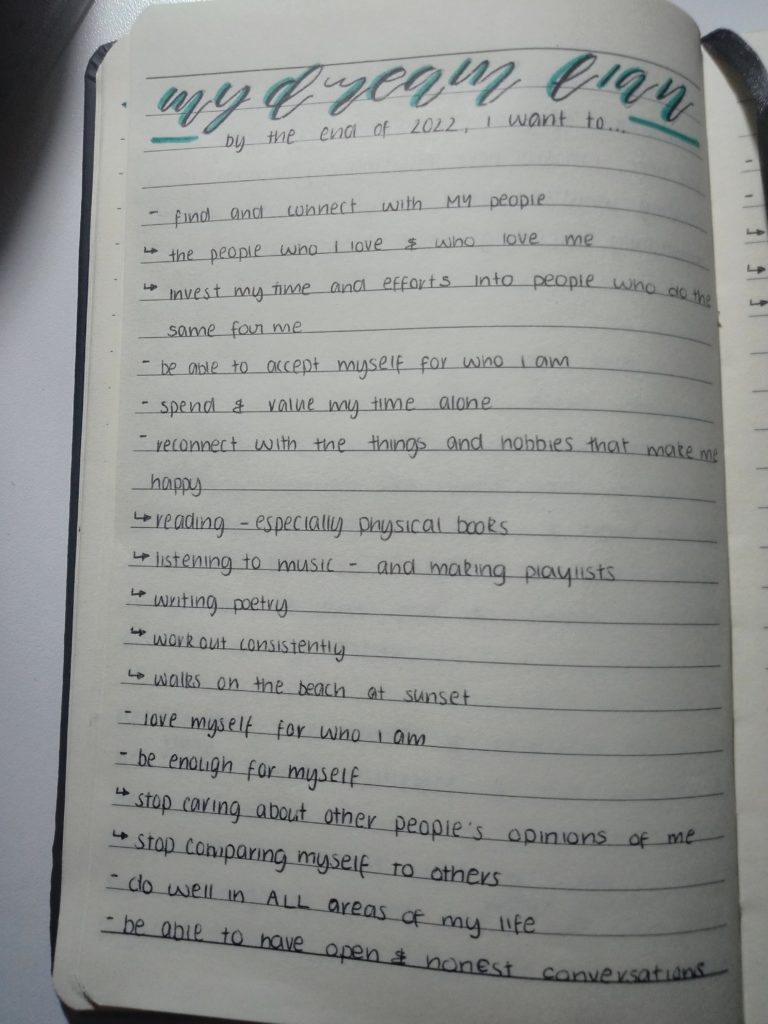 my dream plan
by the end of 2022, I want to...
- find and connect with MY people
↳ the people who I love & who love me
↳ invest my time and efforts into people who do the
same four me
- be able to accept myself for who I am
- spend & value my time alone
- reconnect with the things and hobbies that make me
happy
↳ reading - especially physical books
↳ listening to music - and making playlists
↳ writing poetry
↳ work out consistently
↳ walks on the beach at sunset
- love myself for who I am
- be enough for myself
↳ stop caring about other people's opinions of me
↳ stop comparing myself to others
- do well in ALL areas of my life
- be able to have open & honest conversations